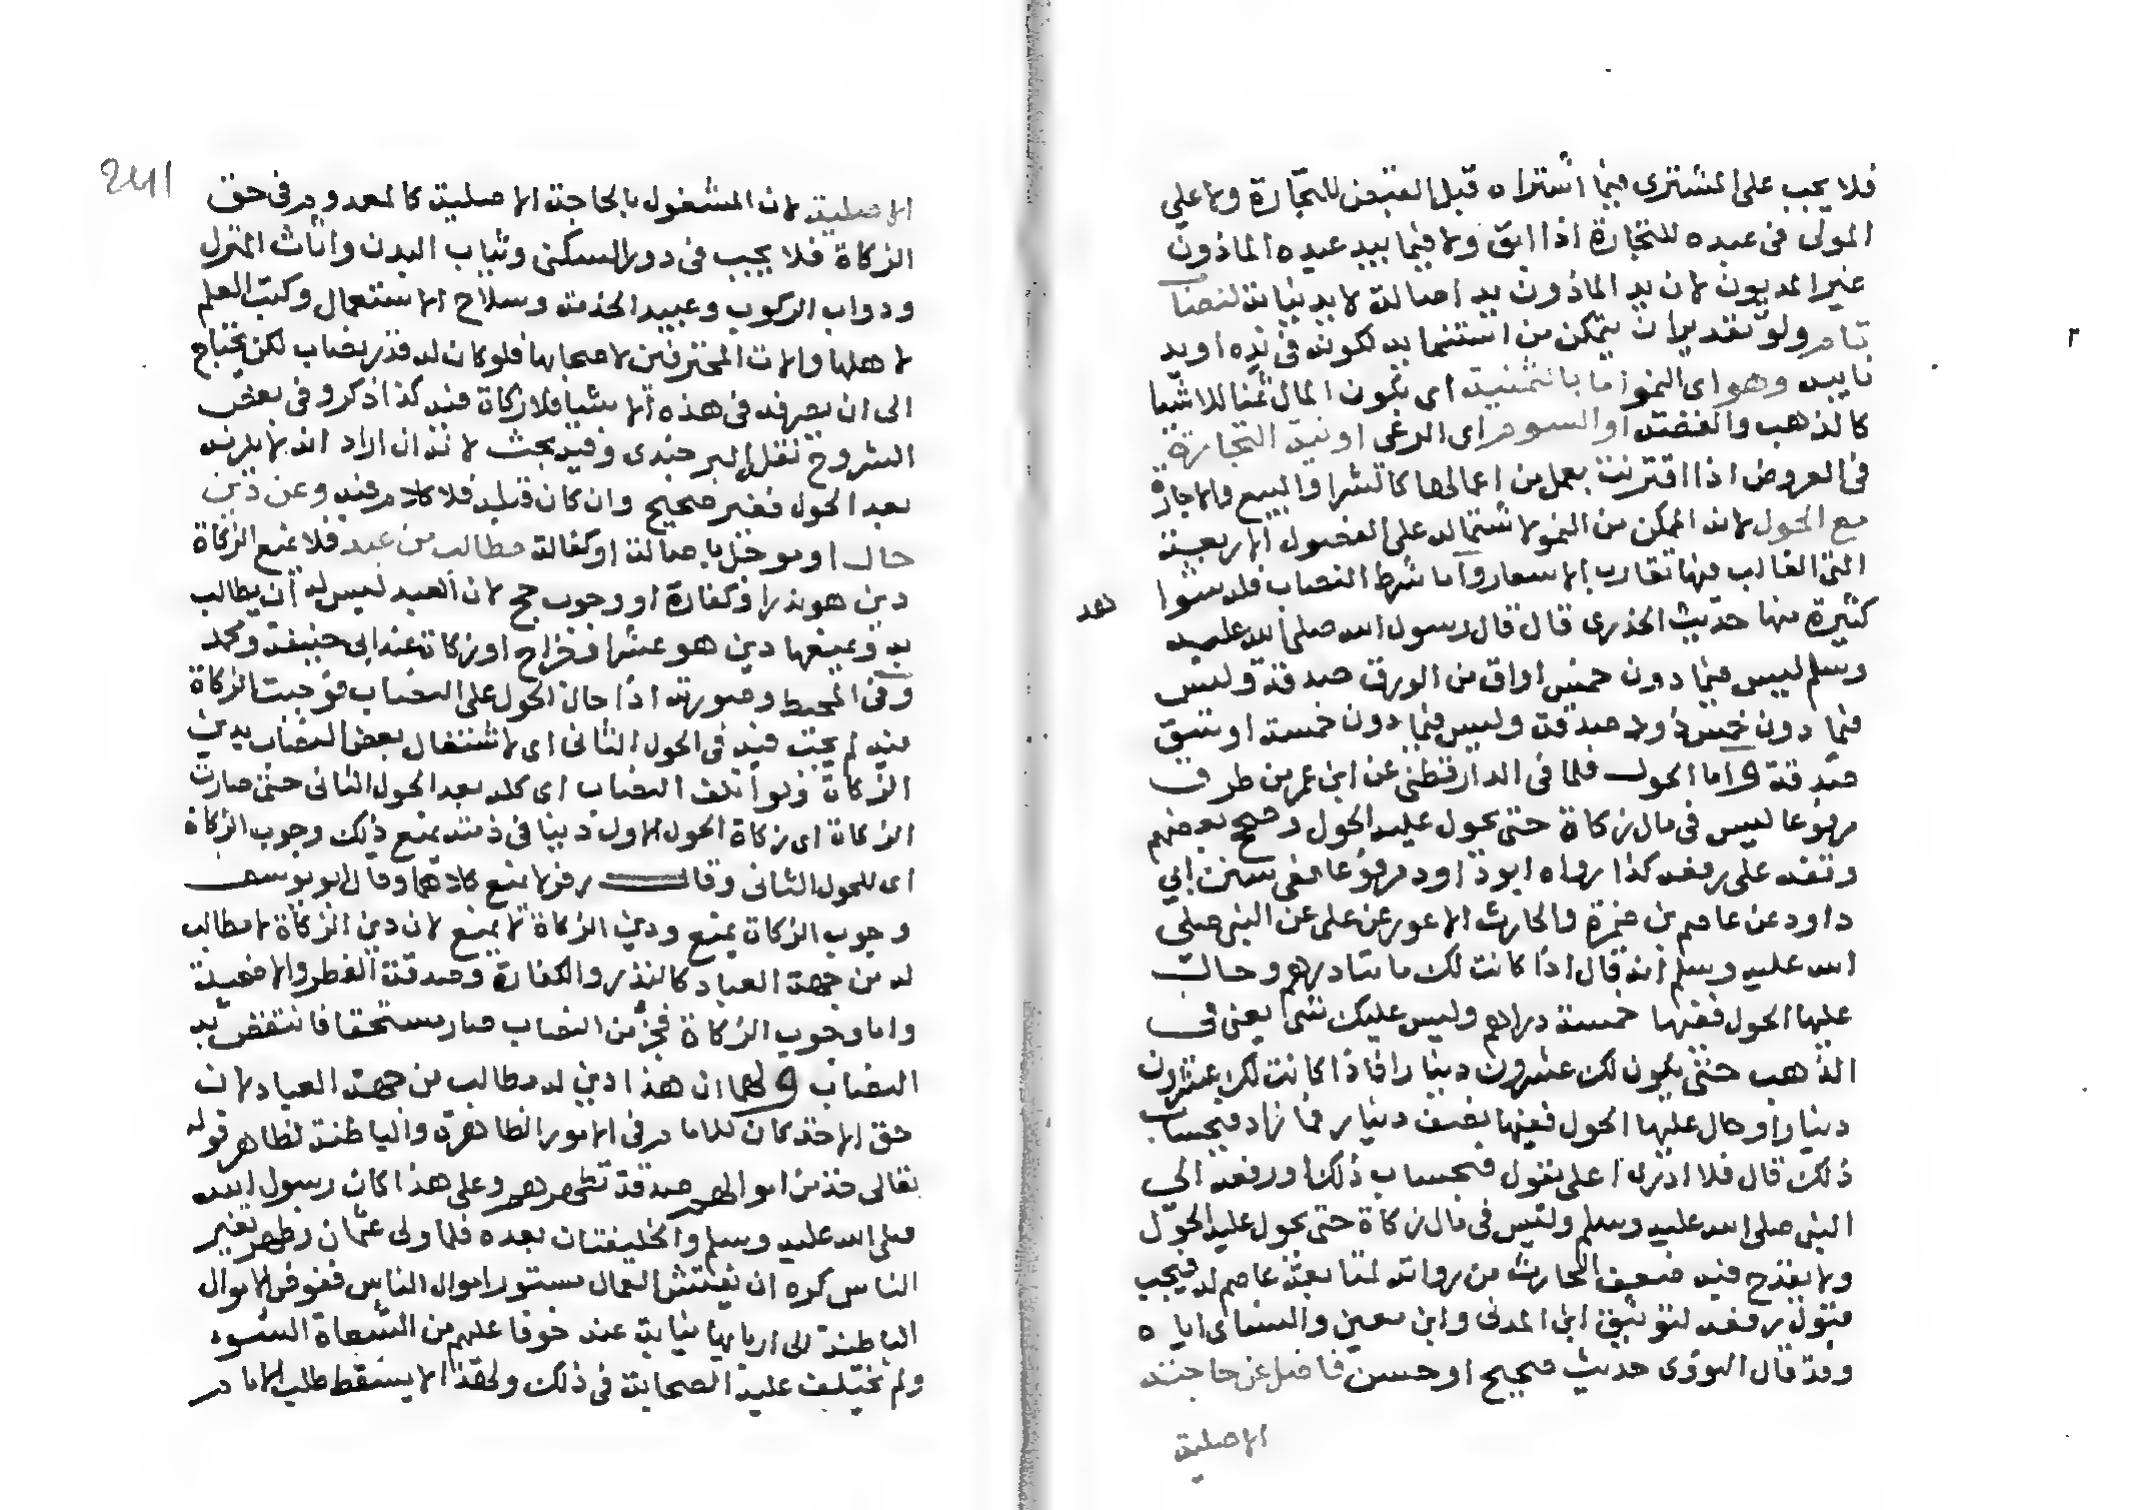 فلا يجب على المشترى فيما اشتراه قبل القبض للتجارة ولا على
المولى فى عبده للتجارة اذا ابق ولا فيما بيد عبده الماذون
غير المديون لان يد الماذون يد اصالة لا يد نيابة لنصاب
تام ولو تقديرا بان يتمكن من استنمايه لكونه فى يده او يد
نايبه وهو اى النمو اما بالثمنية اى بكون المال ثمنا للاشيا
كالذهب والفضة او السوم اى الرعى او نية التجارة
فى العروض اذا اقترنت بعمل من اعمالها كالشرا والبيع والاجارة
مع الحول لانه الممكن من النمو لاشتماله على الفصول الاربعة
التى الغالب فيها تفاوت الاسعار واما شرط النصاب فلشواهد
كثيرة منها حديث الخدرى قال قال رسول الله صلى الله عليه
وسلم ليس فيما دون خمس اواق من الورق صدقة وليس
فيما دون خمس ذود صدقة وليس فيما دون خمسة اوسق
صدقة واما الحول فلما فى الدارقطنى عن ابن عمر من طرق
مرفوعا ليس فى مال زكاة حتى يحول عليه الحول وصحح بعضهم
وقفه على رفعه كذا رواه ابو داود مرفوعا ففى سنن ابي
داود عن عاصم بن ضمرة والحارث الاعور عن على عن النبى صلى
الله عليه وسلم انه قال اذا كانت لك مايتا درهم وحالت
عليها الحول ففيها خمسة دراهم وليس عليك شى يعنى فى
الذهب حتى يكون لك عشرون دينارا فاذا كانت لك عشرون
دينارا وحال عليها الحول ففيها نصف دينار فما زاد فبحساب
ذلك قال فلا ادرى اعلى يقول فبحساب ذلك او رفعه الى
النبى صلى الله عليه وسلم وليس فى مال زكاة حتى يحول عليه الحول
ولا يقدح فيه ضعف الحارث من رواته لمتابعة عاصم له فيجب
قبول رفعه لتوثيق ابن المدنى وابن معين والنساى اياه
وقد قال النووى حديث صحيح او حسن فاضل عن حاجته
الاصلية
الاصلية لان المشغول بالحاجة الاصلية كالمعدوم فى حق
الزكاة فلا يجب فى دور السكنى وثياب البدن واثاث المنزل
ودواب الركوب وعبيد الخدمة وسلاح الاستعمال وكتب العلم
لاهلها والات المحترفين لاصحابها فلو كان له قدر نصاب لكن يحتاج
الى ان يصرفه فى هذه الاشيا فلا زكاة فيه كذا ذكر وفى بعض
الشروح نقل البرجندى وفيه بحث لانه ان اراد انه
بعد الحول فغير صحيح وان كان قبله فلا كلام فيه وعن دين
حال او موجل باصالة او كفالة مطالب من عبد فلا يمنع الزكاة
دين هو نذر او كفارة او وجوب حج لان العبد ليس له ان يطالب
به ويمنعها دين هو عشر او خراج او زكاة عند ابى حنيفة ومحمد
وفى المحيط وصورته اذا حال الحول على النصاب فوجبت الزكاة
فيه لم يجب فيه فى الحول الثانى اى لاشتغال بعض النصاب بدين
الزكاة ولو اتلف النصاب اى كله بعد الحول الثانى حتى صارت
الزكاة اى زكاة الحول الاول دينا فى ذمته يمنع ذلك وجوب الزكاة
اى للحول الثانى وقال زفر لا يمنع كلاهما وقال ابو يوسف
وجوب الزكاة يمنع ودين الزكاة لا يمنع لان دين الزكاة لا مطالب
له من جهة العباد كالنذر والكفارة وصدقة الفطر والاضحية
واما وجوب الزكاة فجز من النصاب صار مستحقا فانتقض به
النصاب ولهما ان هذا دين له مطالب من جهة العباد لان
حق الاخذ كان للامام فى الامور الظاهرة والباطنة لظاهر قوله
تعالى خذ من اموالهم صدقة تطهرهم وعلى هذا كان رسول الله
صلى الله عليه وسلم والخليفتان بعده فلما ولى عثمان وظهر تغير
الناس كره ان يفتش العمال مستور اموال الناس ففوض الاموال
الباطنة الى اربابها نيابة عنه خوفا عليهم من السعاة السوء
ولم يختلف عليه الصحابة فى ذلك وهذا لا يسقط طلب الامام